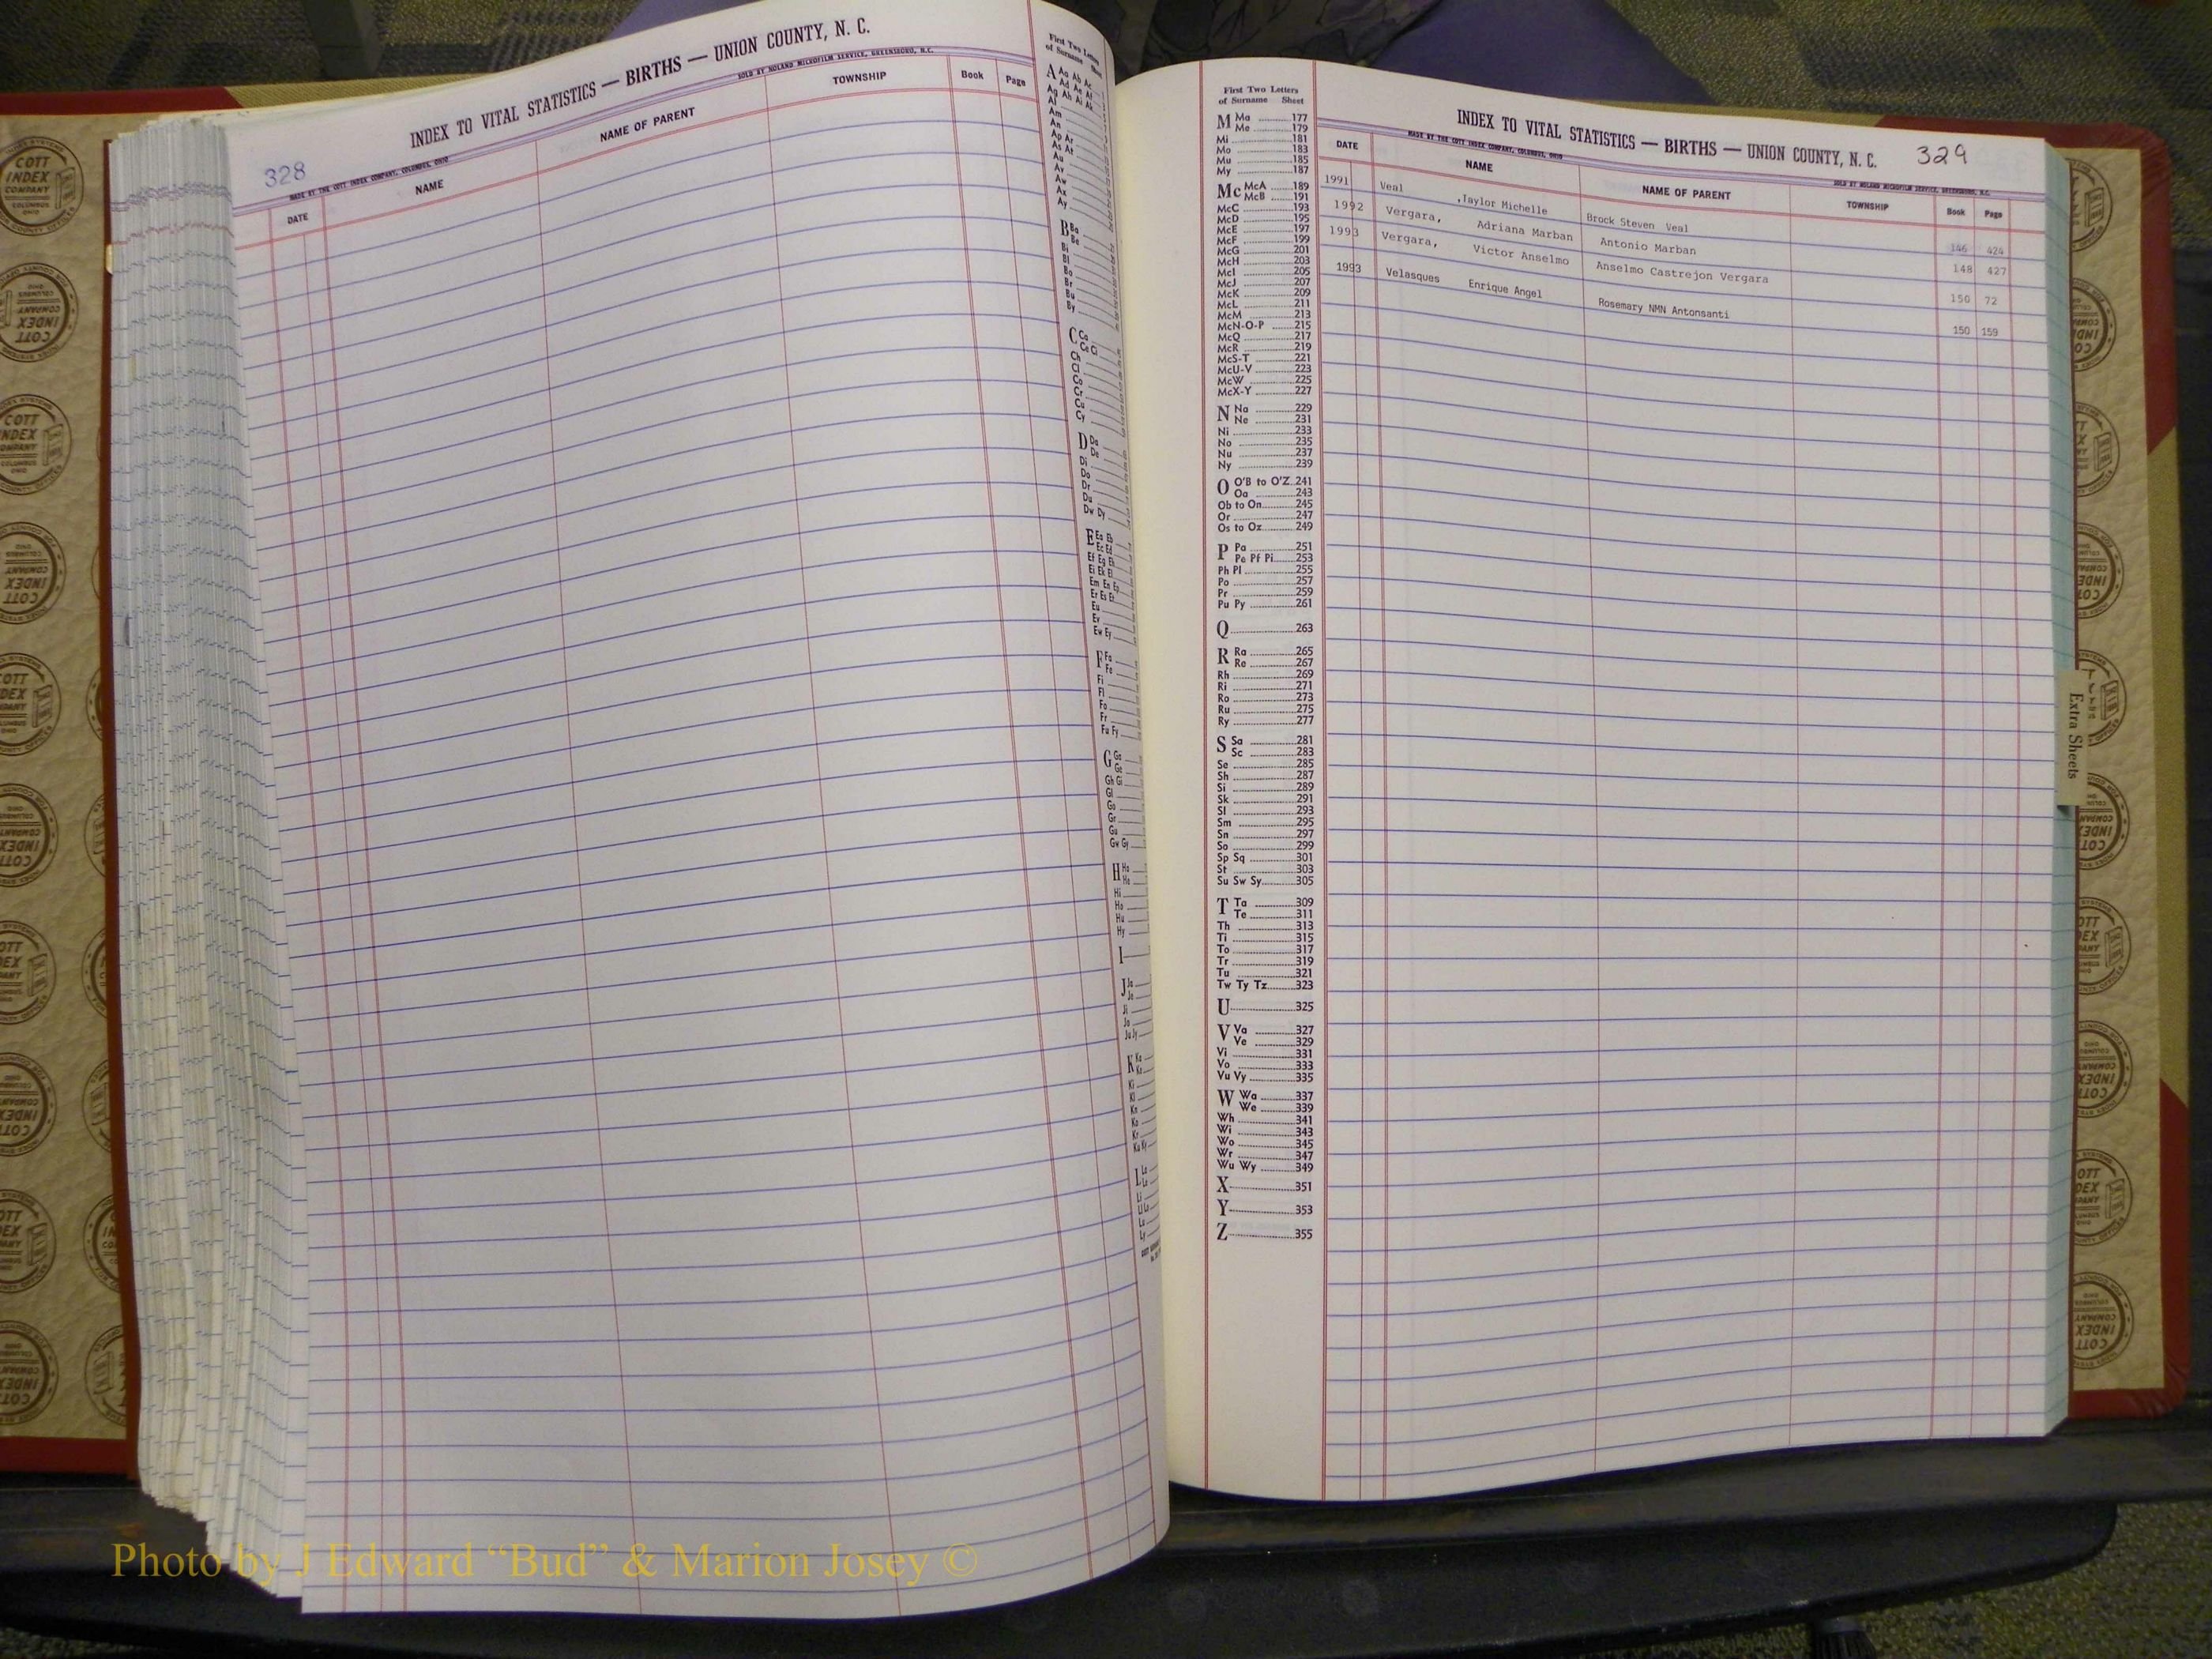 328
INDEX TO VITAL STATISTICS — BIRTHS — UNION COUNTY, N. C.
MADE BY THE COTT INDEX COMPANY, COLUMBUS, OHIO
SOLD BY NOLAND MICROFILM SERVICE, GREENSBORO, N.C.
DATE NAME NAME OF PARENT TOWNSHIP Book Page
First Two Letters
of Surname
A Aa Ab Ac
Ad Ae Af
Ag Ah Ai Ak
Al
Am
An
Ap Ar
As At
Au
Av
Aw
Ax
Ay
B Ba
Be
Bi
Bl
Bo
Br
Bu
By
C Ca
Ce Ci
Ch
Cl
Co
Cr
Cu
Cy
D Da
De
Di
Do
Dr
Du
Dw Dy
E Ea Eb
Ec Ed
Ef Eg Eh
Ei Ek El
Em En Eg
Er Es Et
Eu
Ev
Ew Ey
F Fa
Fe
Fi
Fl
Fo
Fr
Fu Fy
G Ga
Ge
Gh Gi
Gl
Go
Gr
Gu
Gw Gy
H Ha
He
Hi
Ho
Hu
Hy
I
J Ja
Je
Ji
Jo
Ju Jy
K Ka
Ke
Ki
Kl
Kn
Ko
Kr
Ku Ky
L La
Le
Li
Ll Lo
Lu
Ly
First Two Letters
of Surname Sheet
M Ma 177
Me 179
Mi 181
Mo 183
Mu 185
My 187
Mc McA 189
McB 191
McC 193
McD 195
McE 197
McF 199
McG 201
McH 203
McI 205
McJ 207
McK 209
McL 211
McM 213
McN-O-P 215
McQ 217
McR 219
McS-T 221
McU-V 223
McW 225
McX-Y 227
N Na 229
Ne 231
Ni 233
No 235
Nu 237
Ny 239
O O'B to O'Z 241
Oa 243
Ob to On 245
Or 247
Os to Oz 249
P Pa 251
Pe Pf Pi 253
Ph Pl 255
Po 257
Pr 259
Pu Py 261
Q 263
R Ra 265
Re 267
Rh 269
Ri 271
Ro 273
Ru 275
Ry 277
S Sa 281
Sc 283
Se 285
Sh 287
Si 289
Sk 291
Sl 293
Sm 295
Sn 297
So 299
Sp Sq 301
St 303
Su Sw Sy 305
T Ta 309
Te 311
Th 313
Ti 315
To 317
Tr 319
Tu 321
Tw Ty Tz 323
U 325
V Va 327
Ve 329
Vi 331
Vo 333
Vu Vy 335
W Wa 337
We 339
Wh 341
Wi 343
Wo 345
Wr 347
Wu Wy 349
X 351
Y 353
Z 355
INDEX TO VITAL STATISTICS — BIRTHS — UNION COUNTY, N. C. 329
MADE BY THE COTT INDEX COMPANY, COLUMBUS, OHIO
SOLD BY NOLAND MICROFILM SERVICE, GREENSBORO, N.C.
DATE NAME NAME OF PARENT TOWNSHIP Book Page
1991 Veal ,Taylor Michelle Brock Steven Veal 146 424
1992 Vergara, Adriana Marban Antonio Marban 148 427
1993 Vergara, Victor Anselmo Anselmo Castrejon Vergara 150 72
1993 Velasques Enrique Angel Rosemary NMN Antonsanti 150 159
Extra Sheets
COTT
INDEX
COMPANY
COLUMBUS
OHIO
Photo by J Edward “Bud” & Marion Josey ©